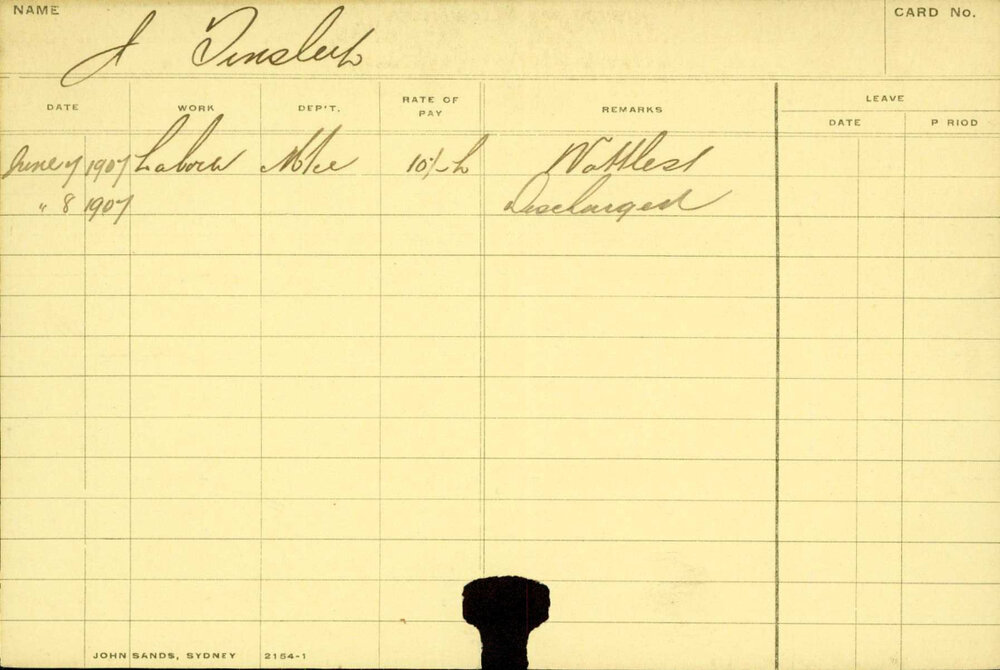 NAME
CARD No.
J
DATE WORK DEP'T. RATE OF PAY REMARKS LEAVE
DATE P RIOD
June 7 1907 Labour 10/-
" 8 1907 Discharged
JOHN SANDS, SYDNEY 2154-1